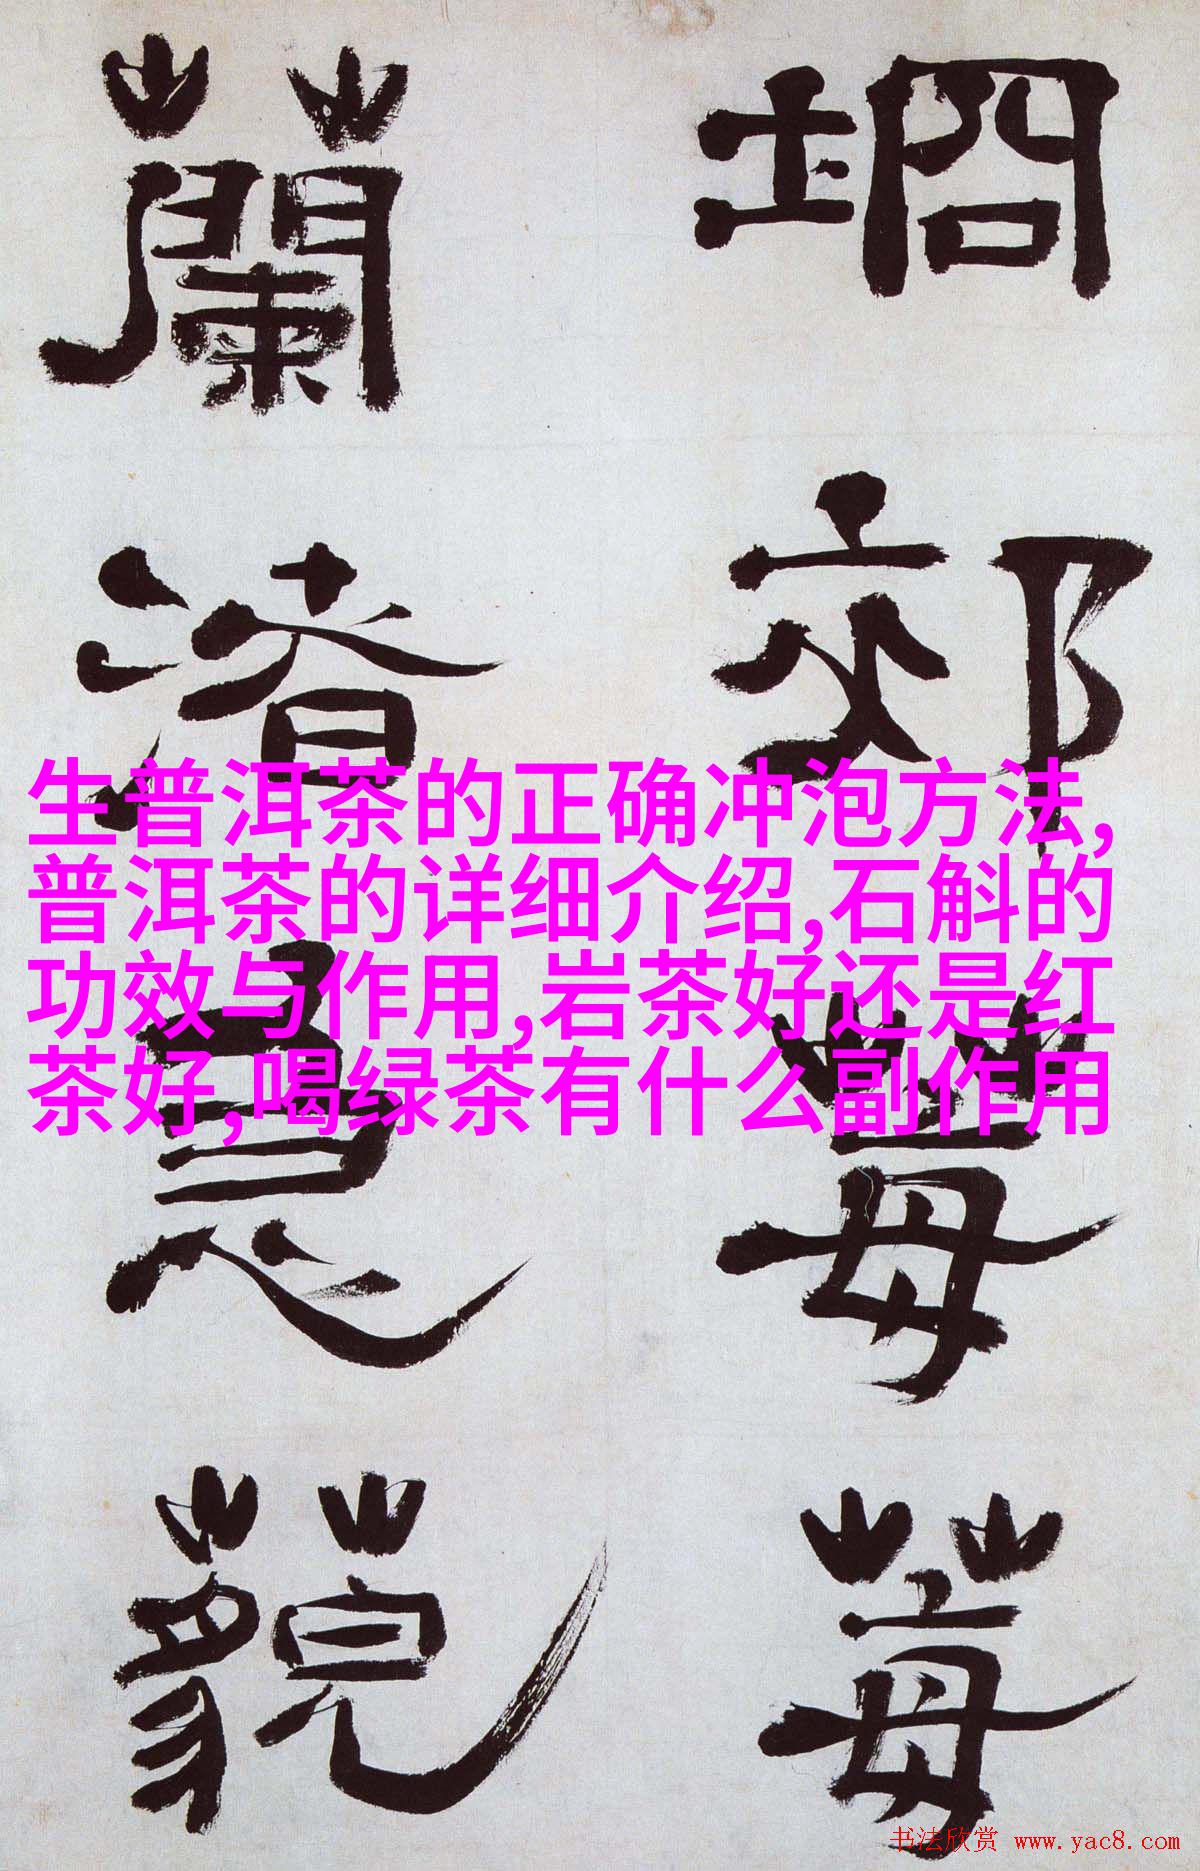 坰郊莓莓
蘭渚急藐
生普洱茶的正确冲泡方法,
普洱茶的详细介绍,石斛的
功效与作用,岩茶好还是红
茶好,喝绿茶有什么副作用
书法欣赏 www.yac8.com